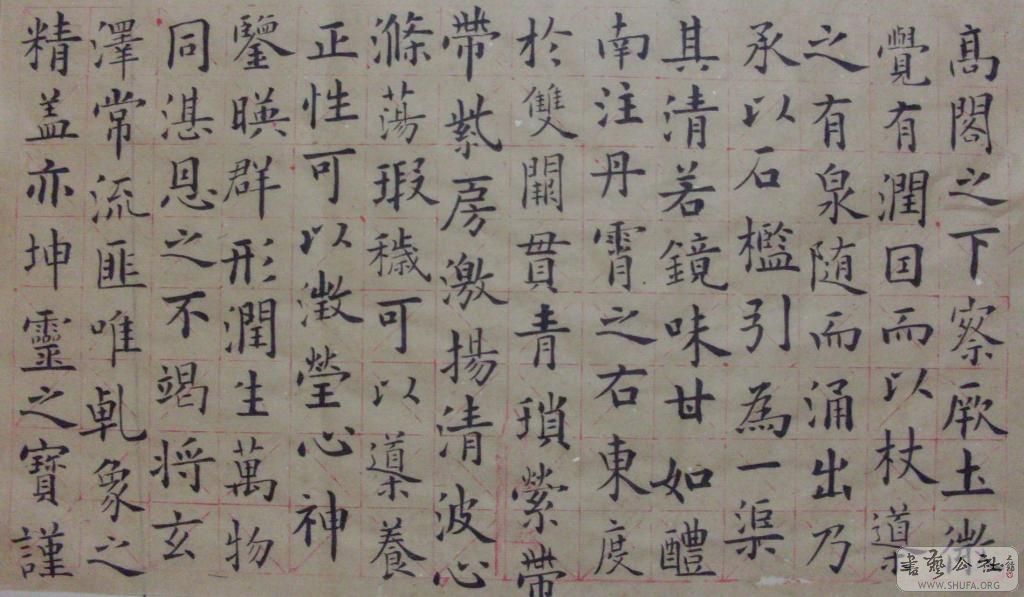 高閣之下察厥土微
覺有潤因而以杖導
之有泉随而涌出乃
承以石檻引為一渠
其清若鏡味甘如醴
南注丹霄之右東度
於雙闕貫青瑣縈帶
帶紫房激揚清波心
滌蕩瑕穢可以導養
正性可以澂瑩心神
鑒暎群形潤生萬物
同湛恩之不竭将玄
澤常流匪唯乹象之
精盖亦坤靈之寶謹
書藝公社
WWW.SHUFA.ORG